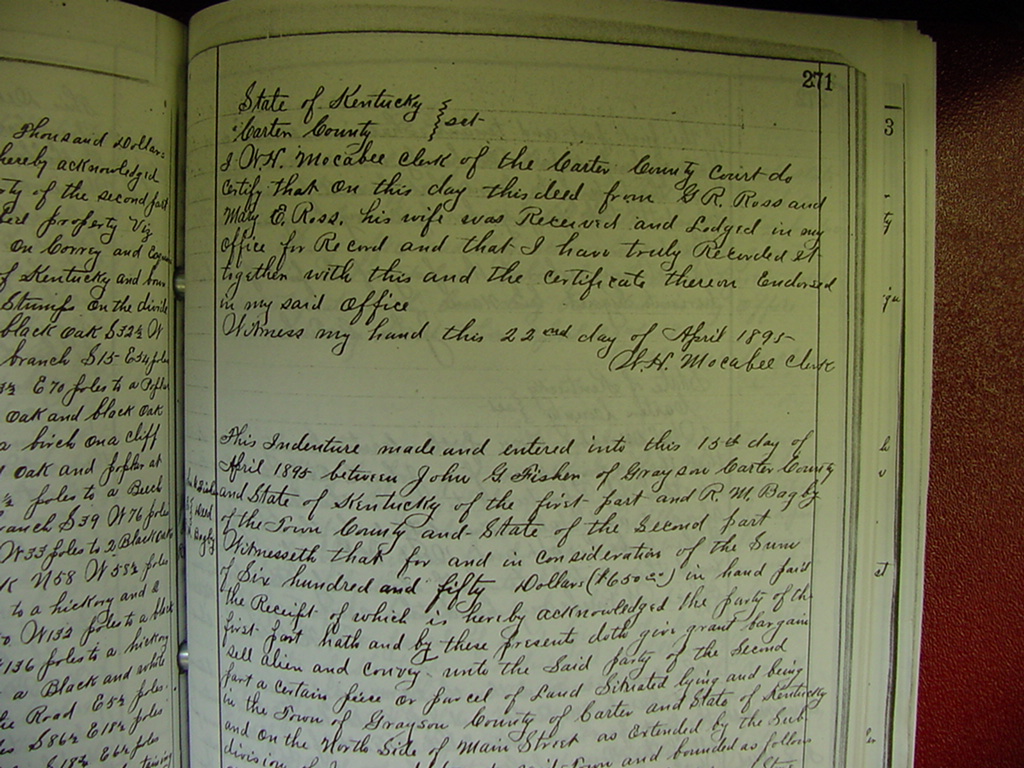 Thousand Dollars
hereby acknowledged
of the second part
property Viz
On Correy and
of Kentucky and
Stumps On the divide
black Oak S32½ W
branch S15 E54 poles
E70 poles to a
Oak and black Oak
a birch on a cliff
Oak and poplar at
poles to a Beech
S39 W76 poles
W33 poles to 2 Black Oaks
N58 W58½ poles
to a hickory and a
W132 poles to a black
136 poles to a hickory
a Black and white
Road E5½ poles
S86½ E11½ poles
S18½ E6½ poles
271
State of Kentucky
Carter County } sct
I W.H. Mocabee Clerk of the Carter County Court do
Certify that On this day this deed from G R. Ross and
Mary E. Ross. his wife was Received and Lodged in my
Office for Record and that I have truly Recorded it
together with this and the certificate thereon Endorsed
in my said Office
Witness my hand this 22nd day of April 1895
W.H. Mocabee Clerk
This Indenture made and entered into this 15th day of
April 1895 between John G. Fisher of Grayson Carter County
and State of Kentucky of the first part and R. M. Bagby
of the Town County and State of the Second part
Witnesseth that for and in consideration of the Sum
of Six hundred and fifty Dollars ($650.00) in hand paid
the Receipt of which is hereby acknowledged the party of the
first part hath and by these presents doth give grant bargain
sell alien and convey unto the Said party of the Second
part a certain piece or parcel of Land Situated lying and being
in the Town of Grayson County of Carter and State of Kentucky
and On the North Side of Main Street as extended by the Sub
division of Town and bounded as follows
Deed
Bagby
3